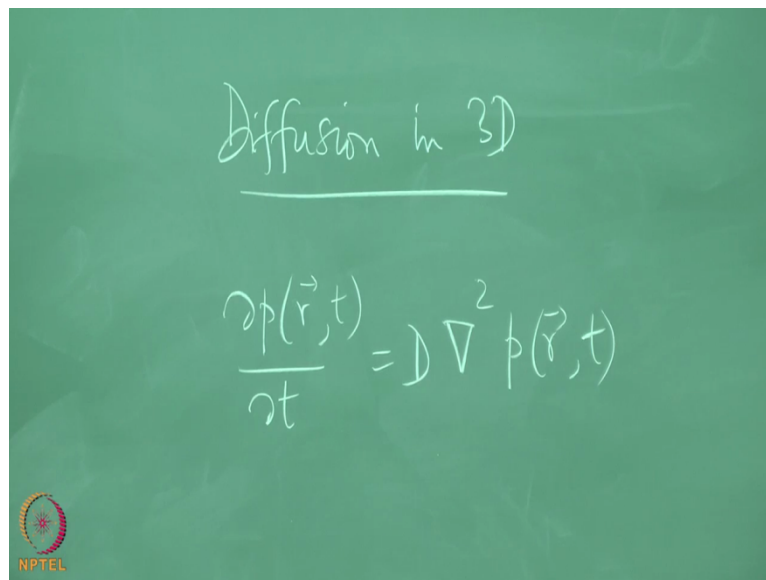 Diffusion in 3D
∂p(r⃗,t)/∂t = D ∇² p(r⃗,t)
NPTEL